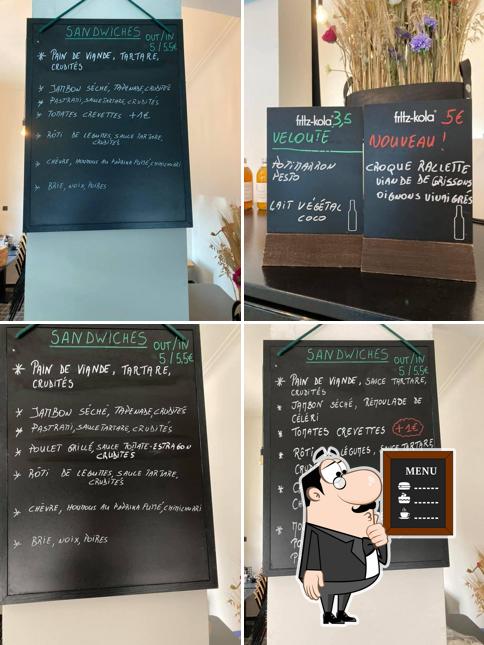 SANDWICHES
OUT/IN
5/5.5€
* PAIN DE VIANDE, TARTARE,
CRUDITÉS
JAMBON SÉCHÉ, TAPENADE, CRUDITÉS
PASTRAMI, SAUCE TARTARE, CRUDITÉS
TOMATES CREVETTES +1€
RÔTI DE LEGUMES, SAUCE TARTARE,
CRUDITÉS
CHÈVRE, HOUMOUS AU PAPRIKA FUMÉ, CHIMICHURRI
BRIE, NOIX, POIRES
fritz-kola 3,5
VELOUTÉ
POTIMARRON
PESTO
LAIT VÉGÉTAL
COCO
fritz-kola 5€
NOUVEAU !
CROQUE RALLETTE
VIANDE DE GRISSONS
OIGNONS VINAIGRÉS
SANDWICHES
OUT/IN
5/5.5€
* PAIN DE VIANDE, TARTARE,
CRUDITÉS
JAMBON SÉCHÉ, TAPENADE, CRUDITÉS
PASTRAMI, SAUCE TARTARE, CRUDITÉS
POULET GRILLÉ, SAUCE TOMATE-ESTRAGON
CRUDITÉS
RÔTI DE LEGUMES, SAUCE TARTARE,
CRUDITÉS
CHÈVRE, HOUMOUS AU PAPRIKA FUMÉ, CHIMICHURRI
BRIE, NOIX, POIRES
SANDWICHES
OUT/IN
5/5.5€
* PAIN DE VIANDE, SAUCE TARTARE,
CRUDITÉS
* JAMBON SÉCHÉ, RÉMOULADE DE
CÉLÉRI
* TOMATES CREVETTES +1€
RÔTI LÉGUMES, SAUCE TARTARE
MENU